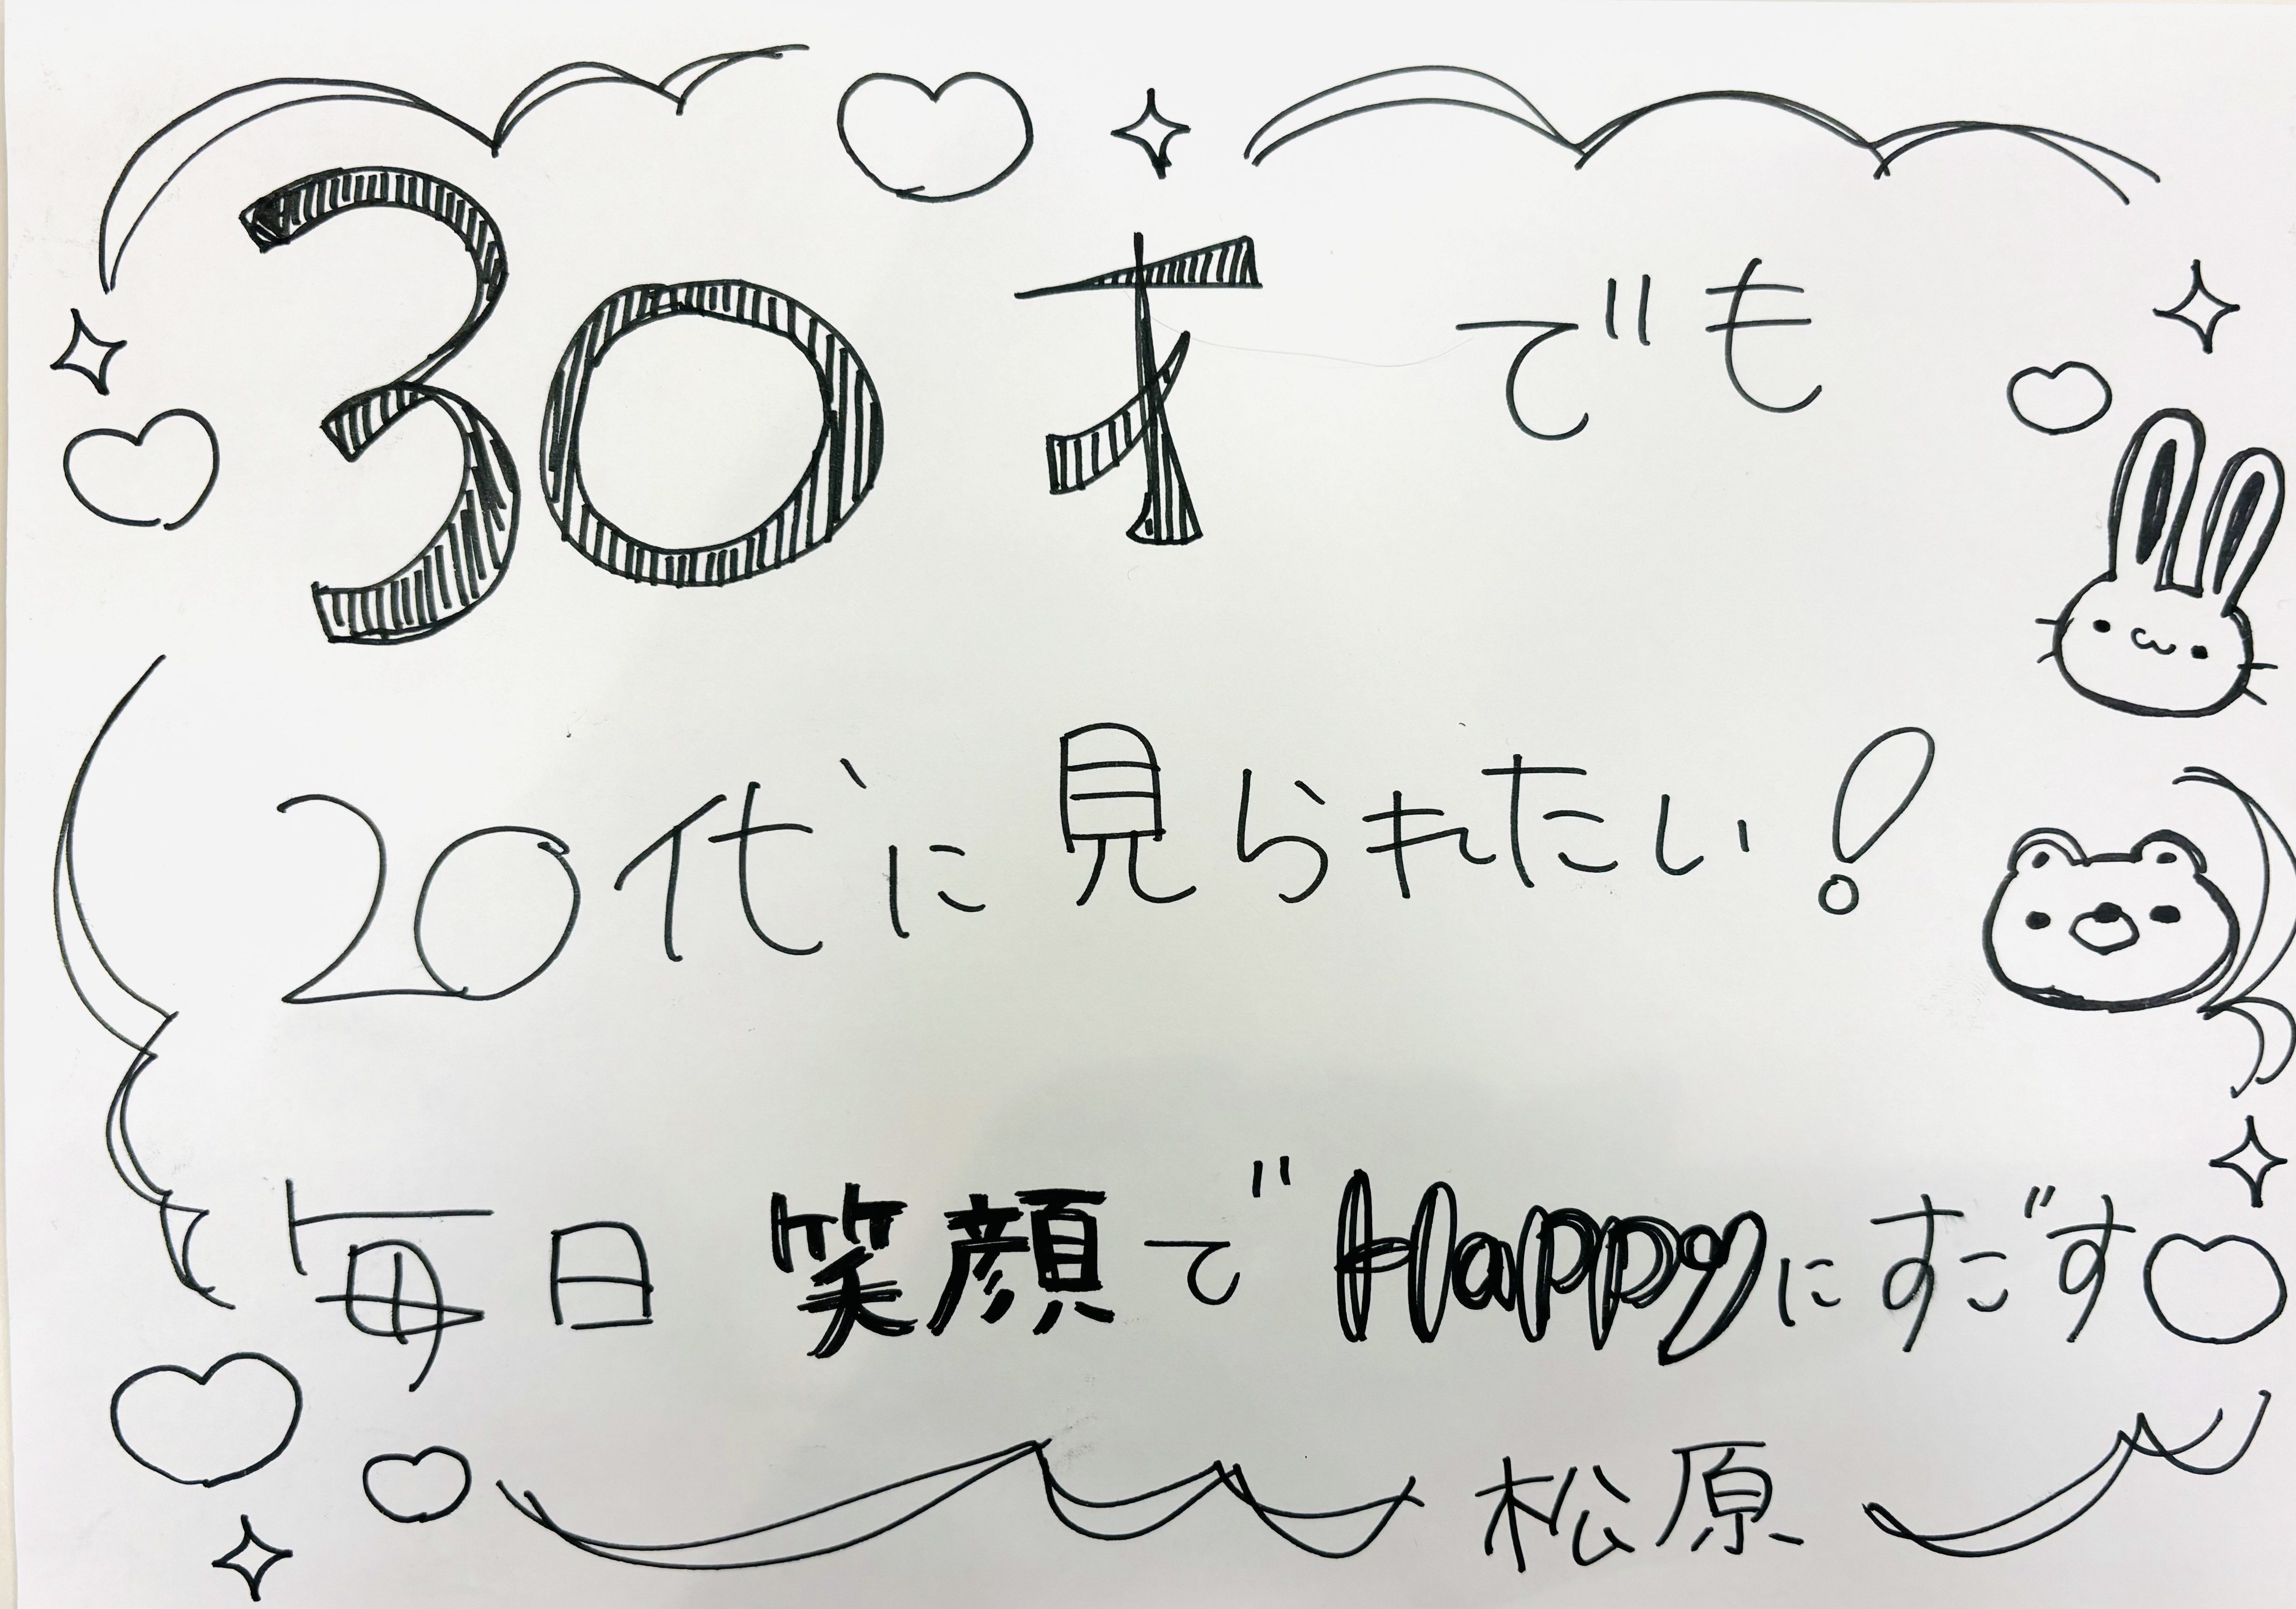 30才でも
20代に見られたい!
毎日笑顔でHappyにすごす
松原